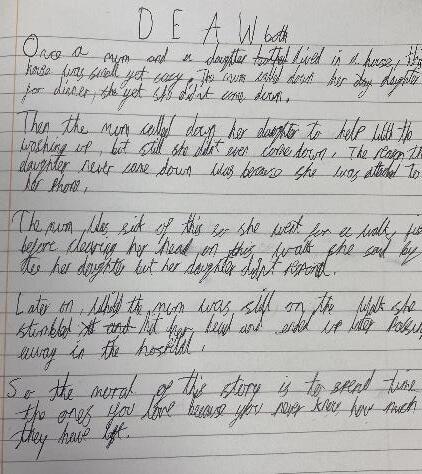 D E A W
Once a mum and a daughter both lived in a house, the
house was small yet cosy. The mum called down her daughter
for dinner, yet she didn't come down.
Then the mum called down her daughter to help with the
washing up, but still she didn't ever come down. The reason the
daughter never came down was because she was attached to
her phone.
The mum was sick of this so she went for a walk,
before clearing her head on this walk she said bye
to her daughter but her daughter didn't respond.
Later on, while the mum was still on the walk she
stumbled and hit her head and ended up later
away in the hospital.
So the moral of this story is to spend time
the ones you love because you never know how much
they have left.